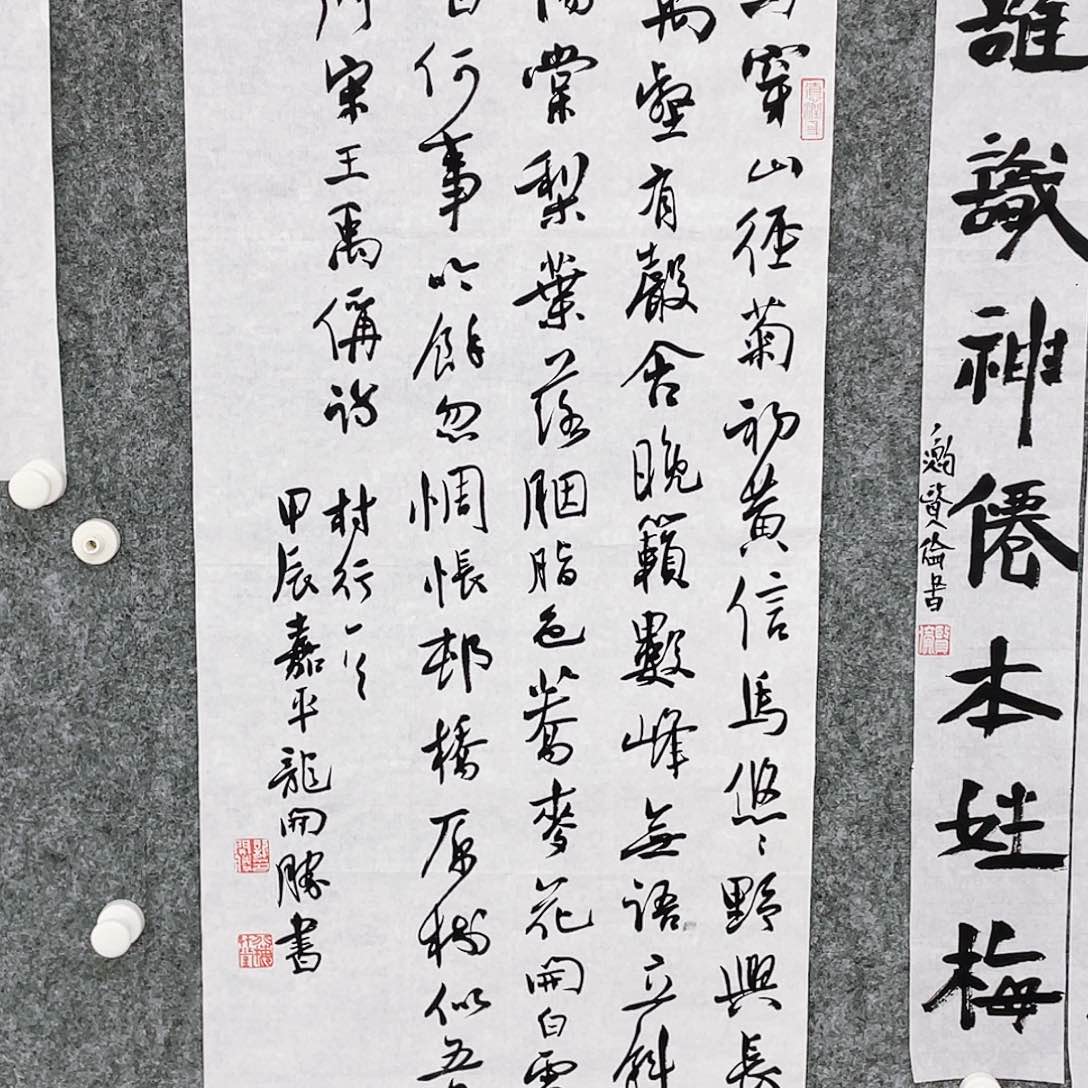 誰識神僊本姓梅
穿山徑菊初黃信馬悠〻野興長
萬壑有聲含晚籟數峰無語立斜
陽棠梨葉落胭脂色蕎麥花開白雪
何事吟餘忽惆悵邨橋原樹似吾
宋王禹偁詩 村行一首
甲辰嘉平龍開勝書